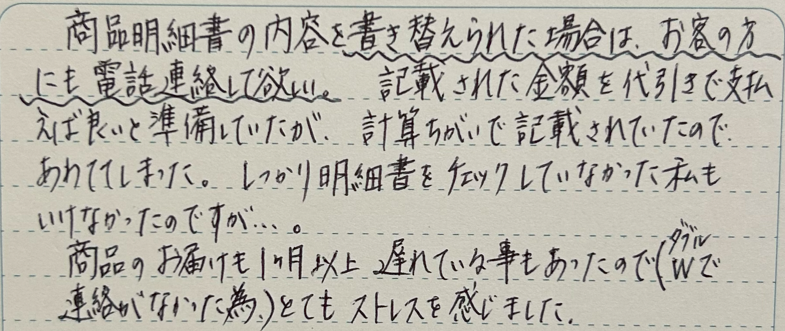 商品明細書の内容を書き替えられた場合は、お客の方
にも電話連絡して欲しい。 記載された金額を代引きで支払
えば良いと準備していたが、計算ちがいで記載されていたので、
あわててしまった。しっかり明細書をチェックしていなかった私も
いけなかったのですが…。
商品のお届けも1ヶ月以上遅れている事もあったので(Wで
ダブル
連絡がなかった為、)とてもストレスを感じました。